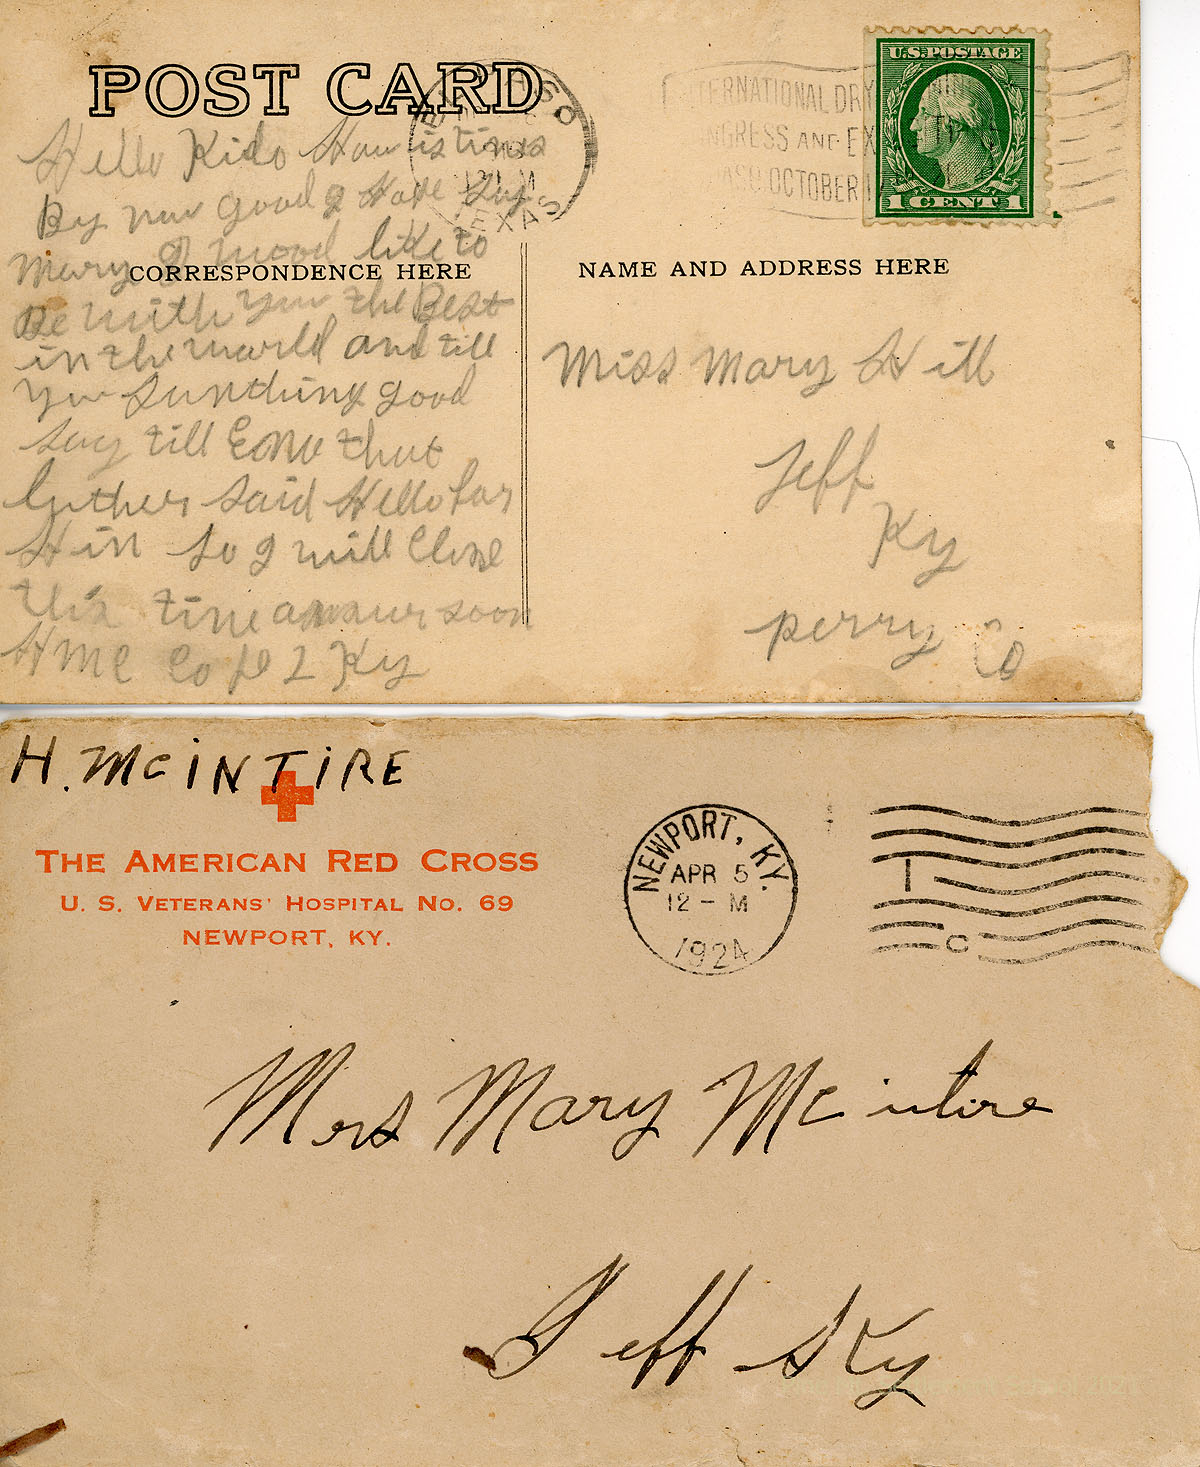 POST CARD
U.S. POSTAGE
1 CENT 1
TERNATIONAL DRY
NGRESS AND EX
OCTOBER 1
TEXAS
Hello Kido How is times
By now good I Hope Say
Mary I wood like to
CORRESPONDENCE HERE
NAME AND ADDRESS HERE
Be with you the Best
in the world and till
you Sunthing good
Say till that
luther Said Hello for
Him So I will Close
this time soon
H MC Co 2 Ky
Miss Mary Hill
Jeff
Ky
perry Co
H. McINTIRE
THE AMERICAN RED CROSS
U. S. VETERANS' HOSPITAL NO. 69
NEWPORT, KY.
NEWPORT, KY.
APR 5
12 - M
1924
Mrs Mary Mcintire
Jeff Ky